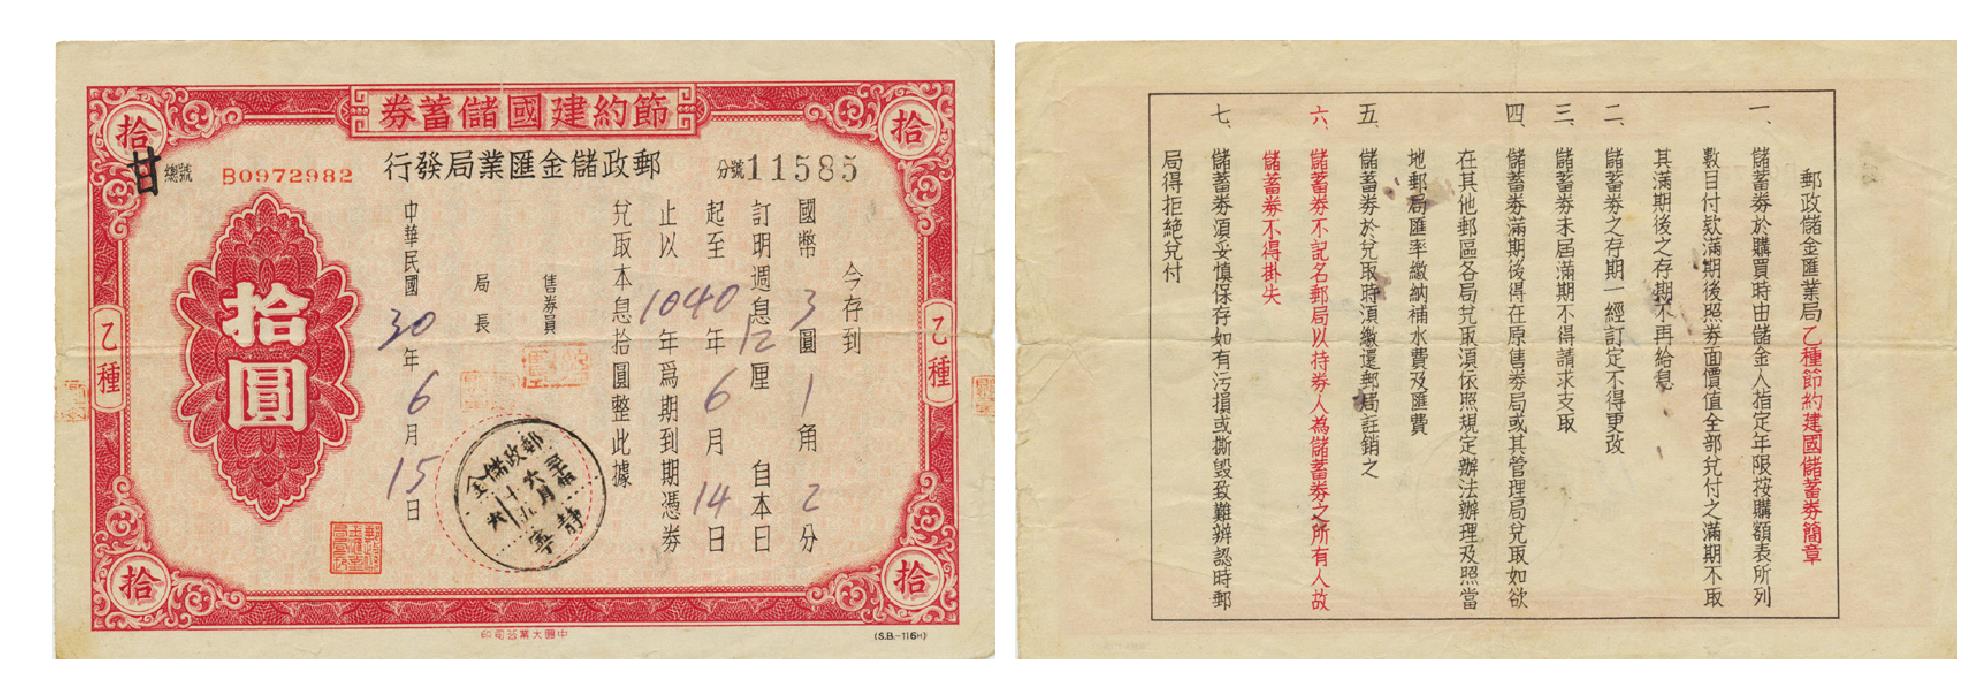 節約建國儲蓄券
郵政儲金匯業局發行
拾
拾
甘
總號 B0972982
分號 11585
乙種
乙種
拾圓
今存到
國幣3圓1角2分
訂明週息12厘 自本日
起至1040年6月14日
止以 年為期到期憑券
兌取本息拾圓整此據
售券員
局長
中華民國30年6月15日
郵政儲金
靜寧
拾
拾
中國大業公司印
(S.B.-116H)
郵政儲金匯業局乙種節約建國儲蓄券簡章
一、儲蓄券於購買時由儲金人指定年限按購額表所列
數目付款滿期後照券面價值全部兌付之滿期不取
其滿期後之存期不再給息
二、儲蓄券之存期一經訂定不得更改
三、儲蓄券未屆滿期不得請求支取
四、儲蓄券滿期後得在原售券局或其管理局兌取如欲
在其他郵區各局兌取須依照規定辦法辦理及照當
地郵局匯率繳納補水費及匯費
五、儲蓄券於兌取時須繳還郵局註銷之
六、儲蓄券不記名郵局以持券人為儲蓄券之所有人故
儲蓄券不得掛失
七、儲蓄券須妥慎保存如有污損或撕毀致難辦認時郵
局得拒絕兌付